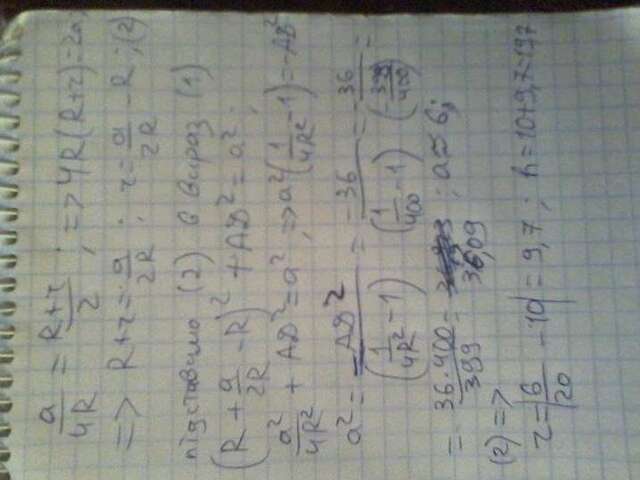 a/4R = (R+r)/2 ; => 4R(R+r)=2a;
=> R+r=a/2R ; r=a/2R -R ; (2)
підставимо (2) в вираз (1)
(R + a/2R - R)² + AD² = a² ;
a²/4R² + AD² = a² ; => a²(1/4R² -1) = -AD²
a² = -AD²/(1/4R² -1) = -36/(1/400 -1) = -36/(-399/400) =
= 36·400/399 = 36,09 ; a≈6;
(2) =>
r = 6/20 -10 = 9,7 ; h = 10+9,7=19,7